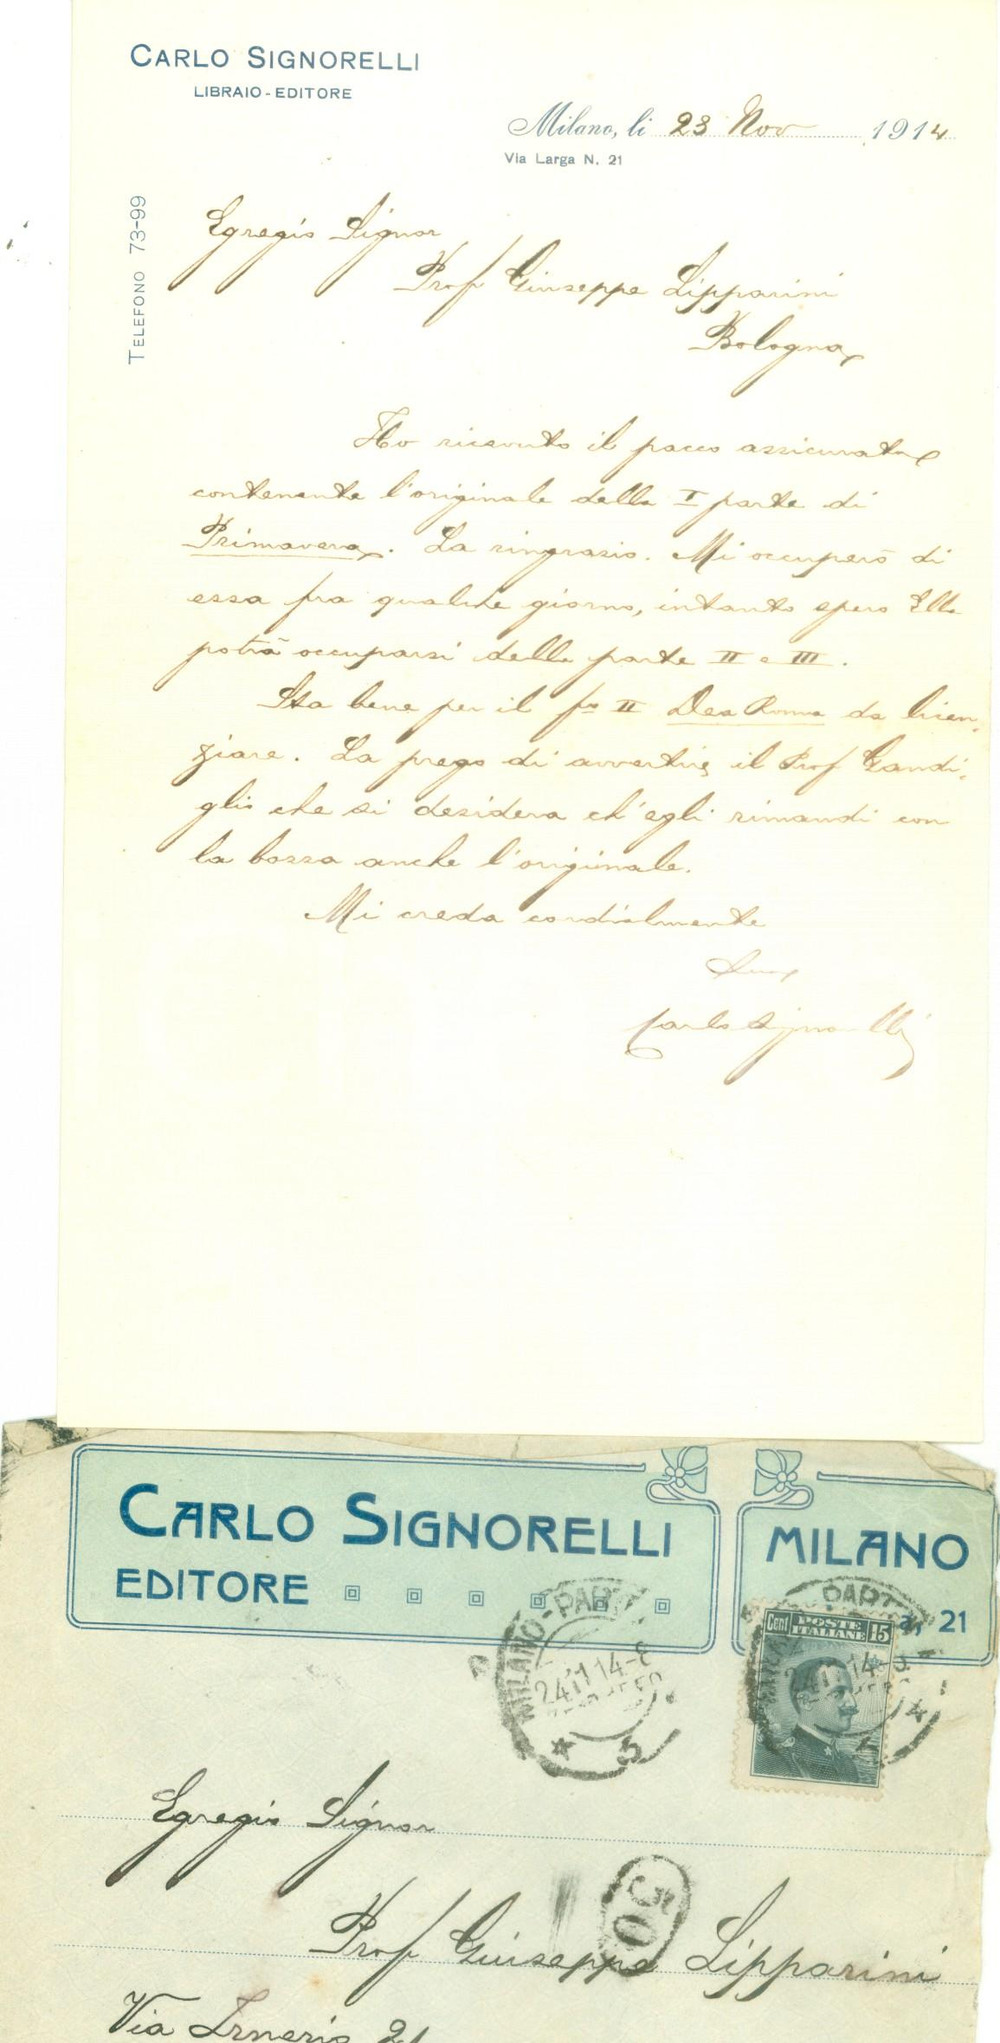 CARLO SIGNORELLI
LIBRAIO-EDITORE
Milano, li 23 Nov 1914
Via Larga N. 21
TELEFONO 73-99
Egregio Signor
Prof Giuseppe Lipparini
Bologna
Ho ricevuto il pacco assicurato
contenente l'originale della I parte di
Primavera. La ringrazio. Mi occuperò di
essa fra qualche giorno, intanto spero Ella
potrà occuparsi della parte II e III.
Sta bene per il II Dea Roma da licen
ziare. La prego di avvertire il Prof Gandi
glio che si desidera ch'egli rimandi con
la bozza anche l'originale.
Mi creda cordialmente
Suo
Carlo Signorelli
CARLO SIGNORELLI
EDITORE
MILANO
21
MILANO-PART
24.11.14-8
5
Cent POSTE ITALIANE 15
PART
Egregio Signor
50
Prof Giuseppe Lipparini
Via Irnerio 21